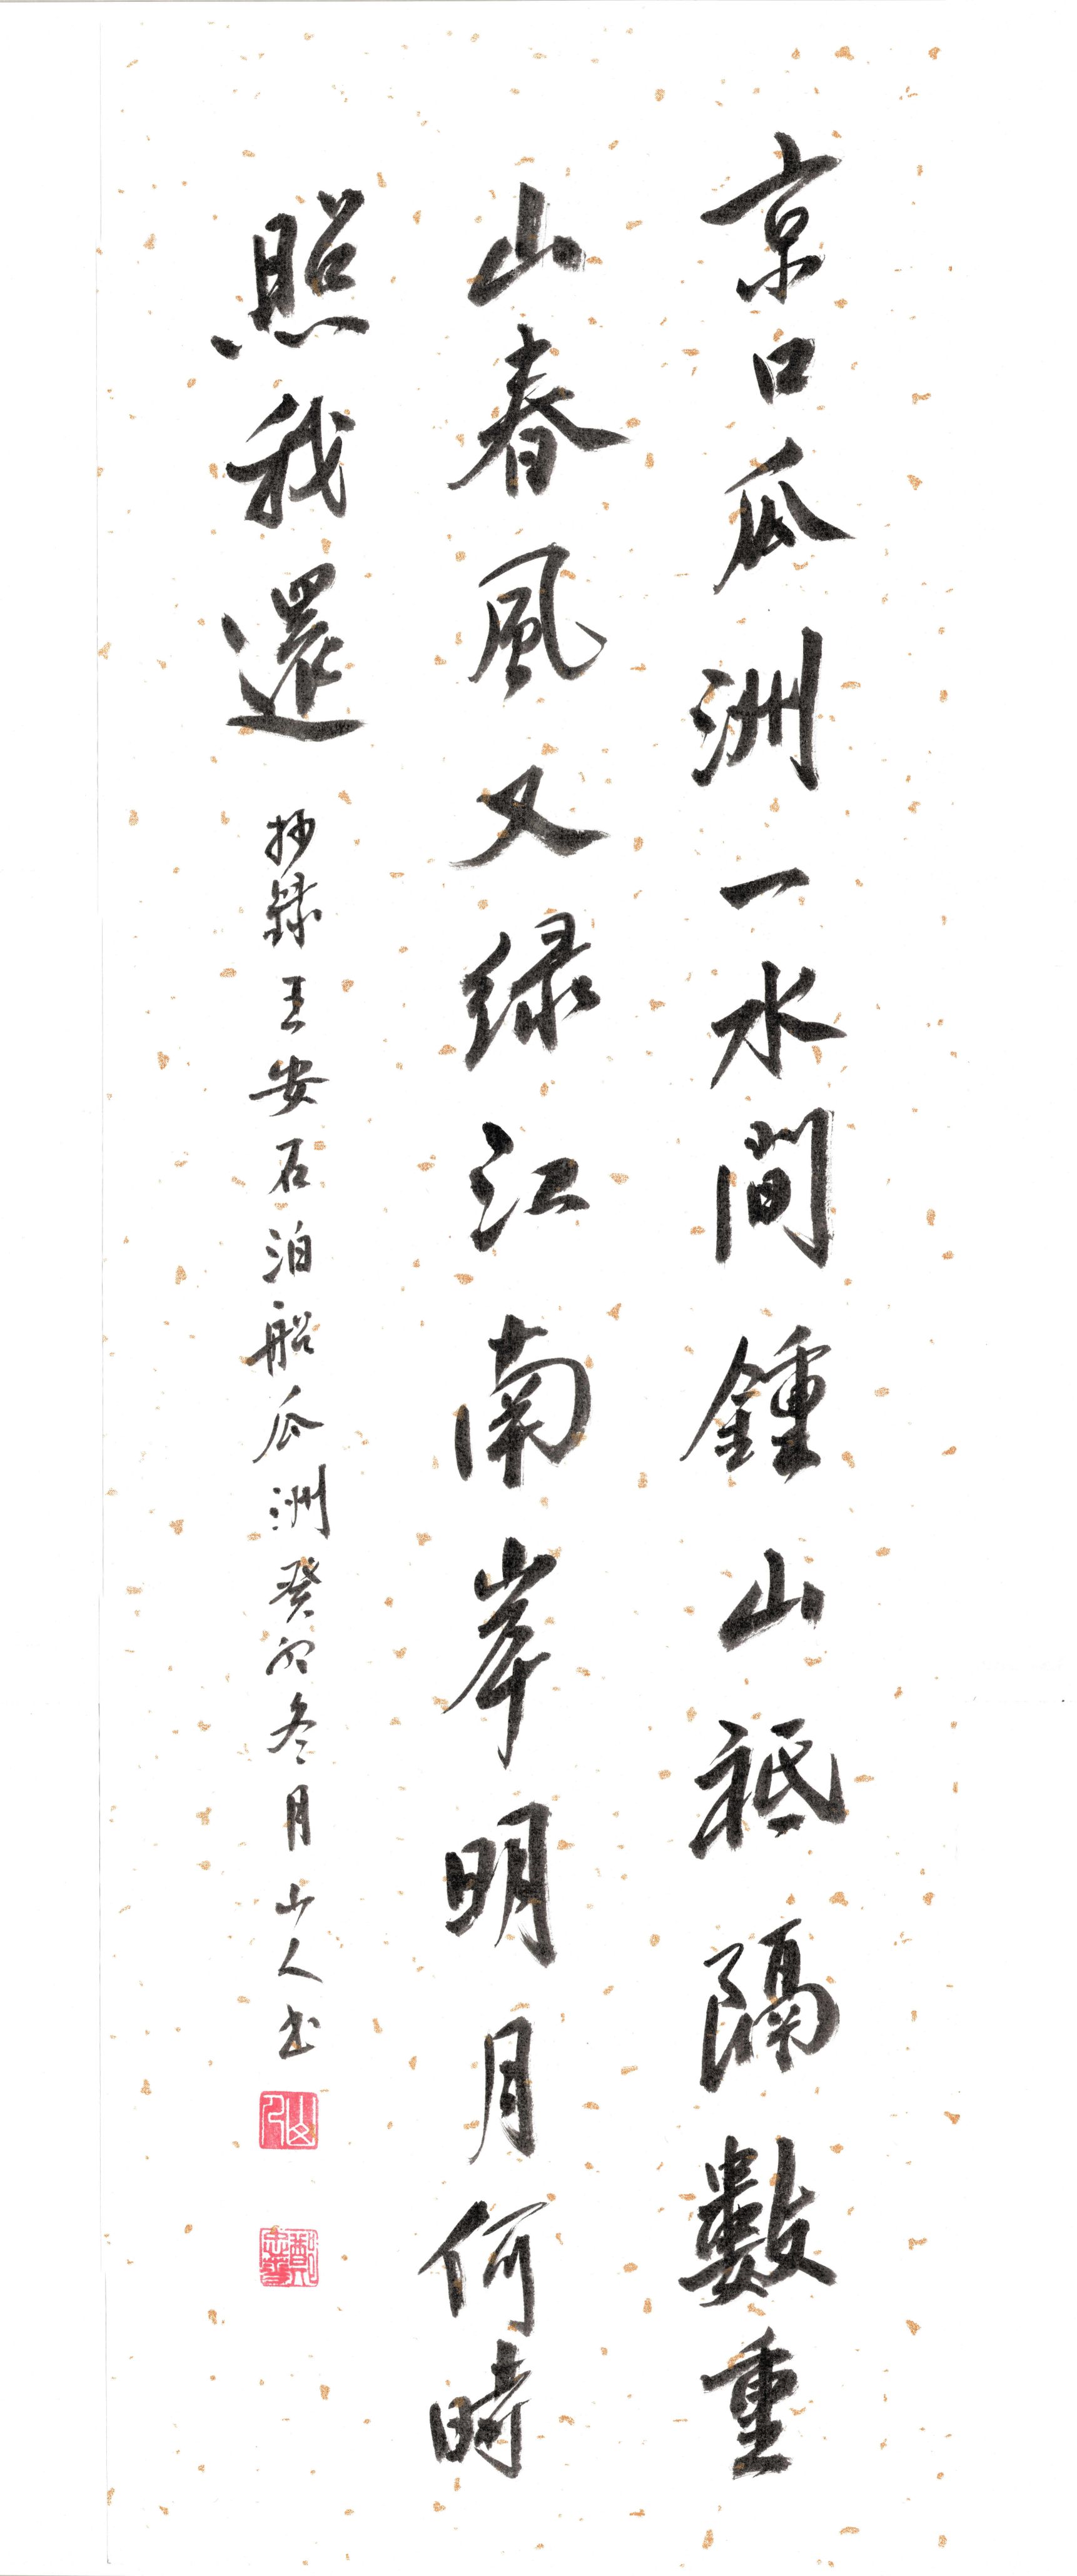 京口瓜洲一水間鍾山祗隔數重
山春風又緑江南岸明月何時
照我還
抄録王安石泊船瓜洲癸卯冬月山人书